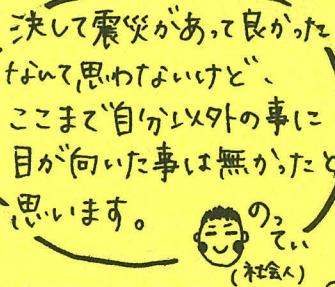 決して震災があって良かった
なんて思わないけど、
ここまで自分以外の事に
目が向いた事は無かったと
思います。
のってぃ
(社会人)